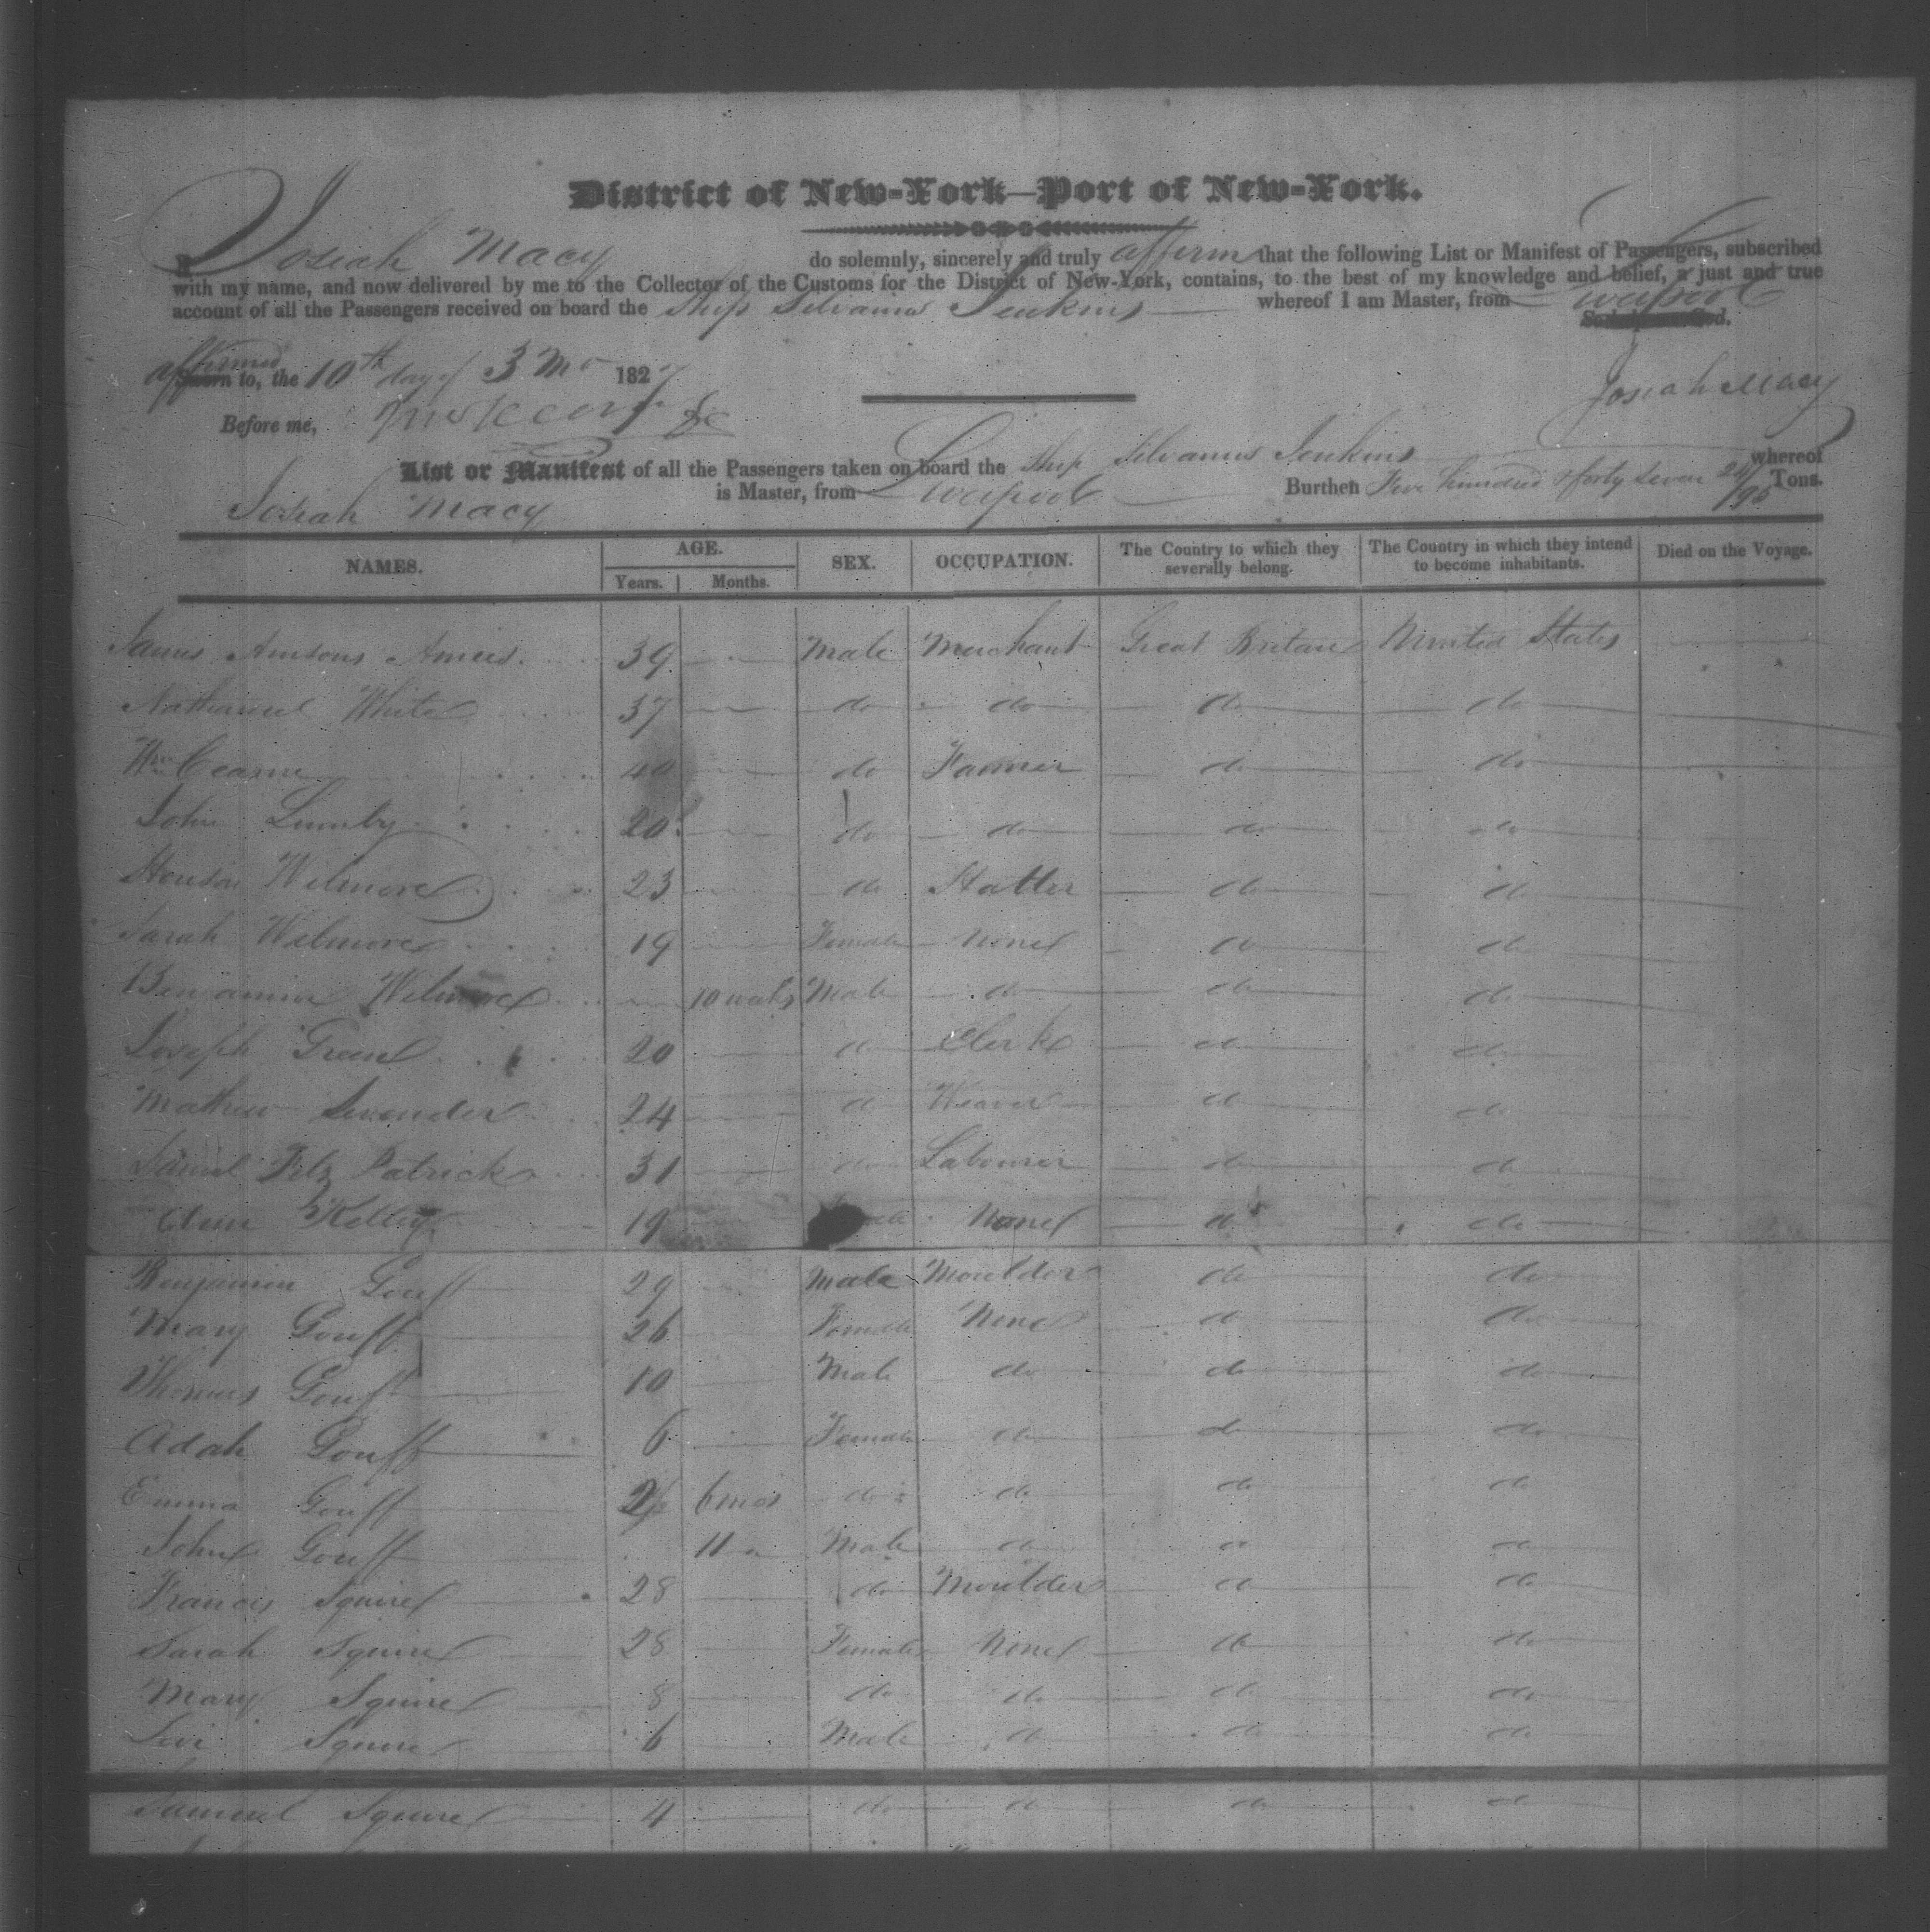 District of New-York—Port of New-York.
I, Josiah Macy do solemnly, sincerely and truly affirm that the following List or Manifest of Passengers, subscribed
with my name, and now delivered by me to the Collector of the Customs for the District of New-York, contains, to the best of my knowledge and belief, a just and true
account of all the Passengers received on board the Ship Silvanus Jenkins whereof I am Master, from Liverpool
affirmed
Sworn to, the 10th day of 3 Mo 1827
Josiah Macy
Before me,
List or Manifest of all the Passengers taken on board the Ship Silvanus Jenkins whereof
Josiah Macy is Master, from Liverpool Burthen Five hundred & forty Seven 24/95 Tons.
NAMES. AGE. SEX. OCCUPATION. The Country to which they severally belong. The Country in which they intend to become inhabitants. Died on the Voyage.
Years. Months.
James 39 Male Merchant Great Britain United States
Nathaniel White 37 do do do do
Wm 40 do Farmer do do
John Lumby 20 do do do do
Wilmore 23 do Hatter do do
Sarah Wilmore 19 Female None do do
Benjamin Wilmore 10 weeks Male do do do
Joseph Green 20 do Clerk do do
Mathew 24 do Weaver do do
Fitz Patrick 31 do Labourer do do
Ann Kelley 19 None do do
Benjamin Gouff 29 Male Moulder do do
Mary Gouff 26 Female None do do
Thomas Gouff 10 Male do do do
Adah Gouff 6 Female do do do
Emma Gouff 2 6 mos do do do do
John Gouff 11 " Male do do do
Francis Squire 28 do Moulder do do
Sarah Squire 28 Female None do do
Mary Squire 8 do do do do
Levi Squire 6 Male do do do
Samuel Squire 4 do do do do